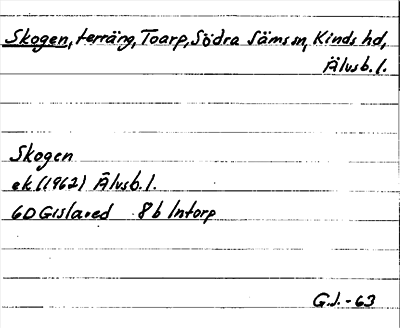 Skogen, terräng, Toarp, Södra Säms sn, Kinds hd,
Älvsb. l.
Skogen
ek (1962) Älvsb. l.
6D Gislaved 8b Intorp
G.J. - 63